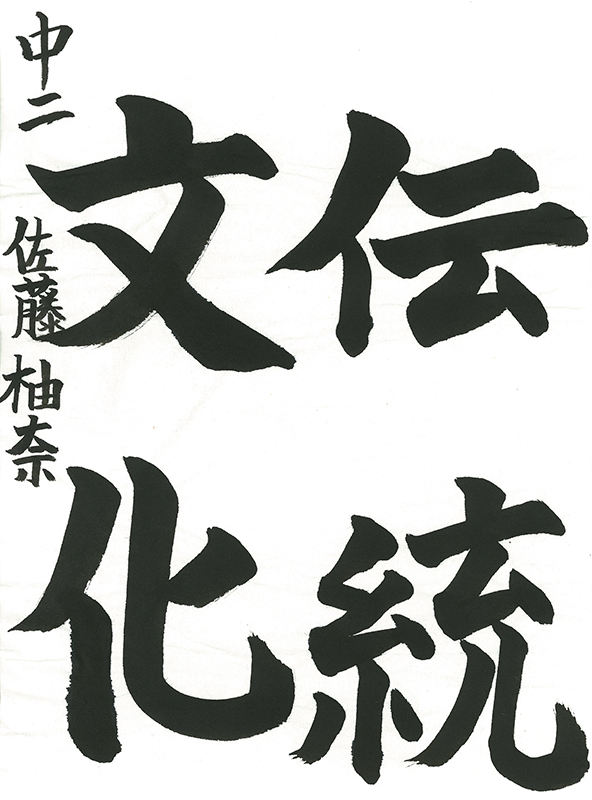 伝統
文化
中二 佐藤 柚奈